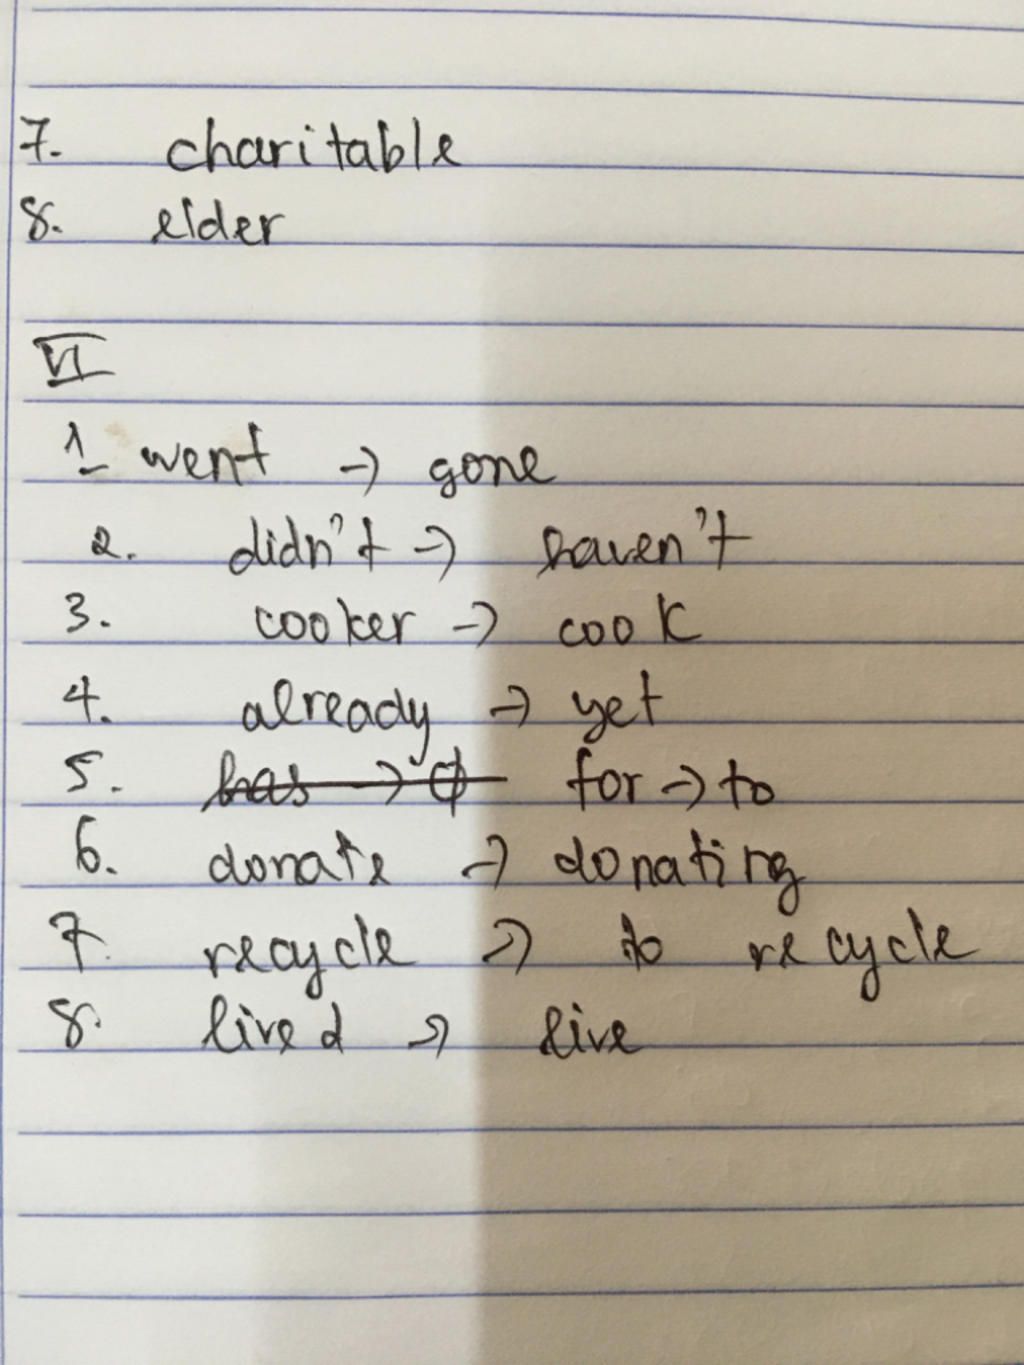 7. charitable
8. elder
VI
1. went -> gone
2. didn't -> haven't
3. cooker -> cook
4. already -> yet
5. has -> ϕ for -> to
6. donate -> donating
7. recycle -> to recycle
8. lived -> live